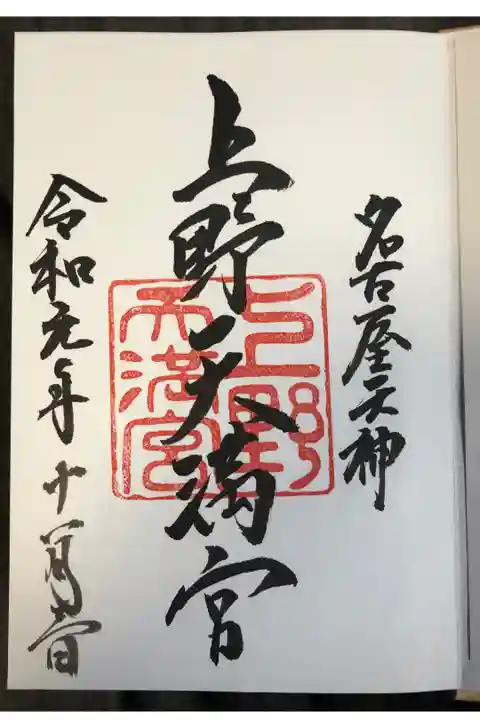 名古屋天神
上野天満宮
令和元年十一月日
上野
天満宮